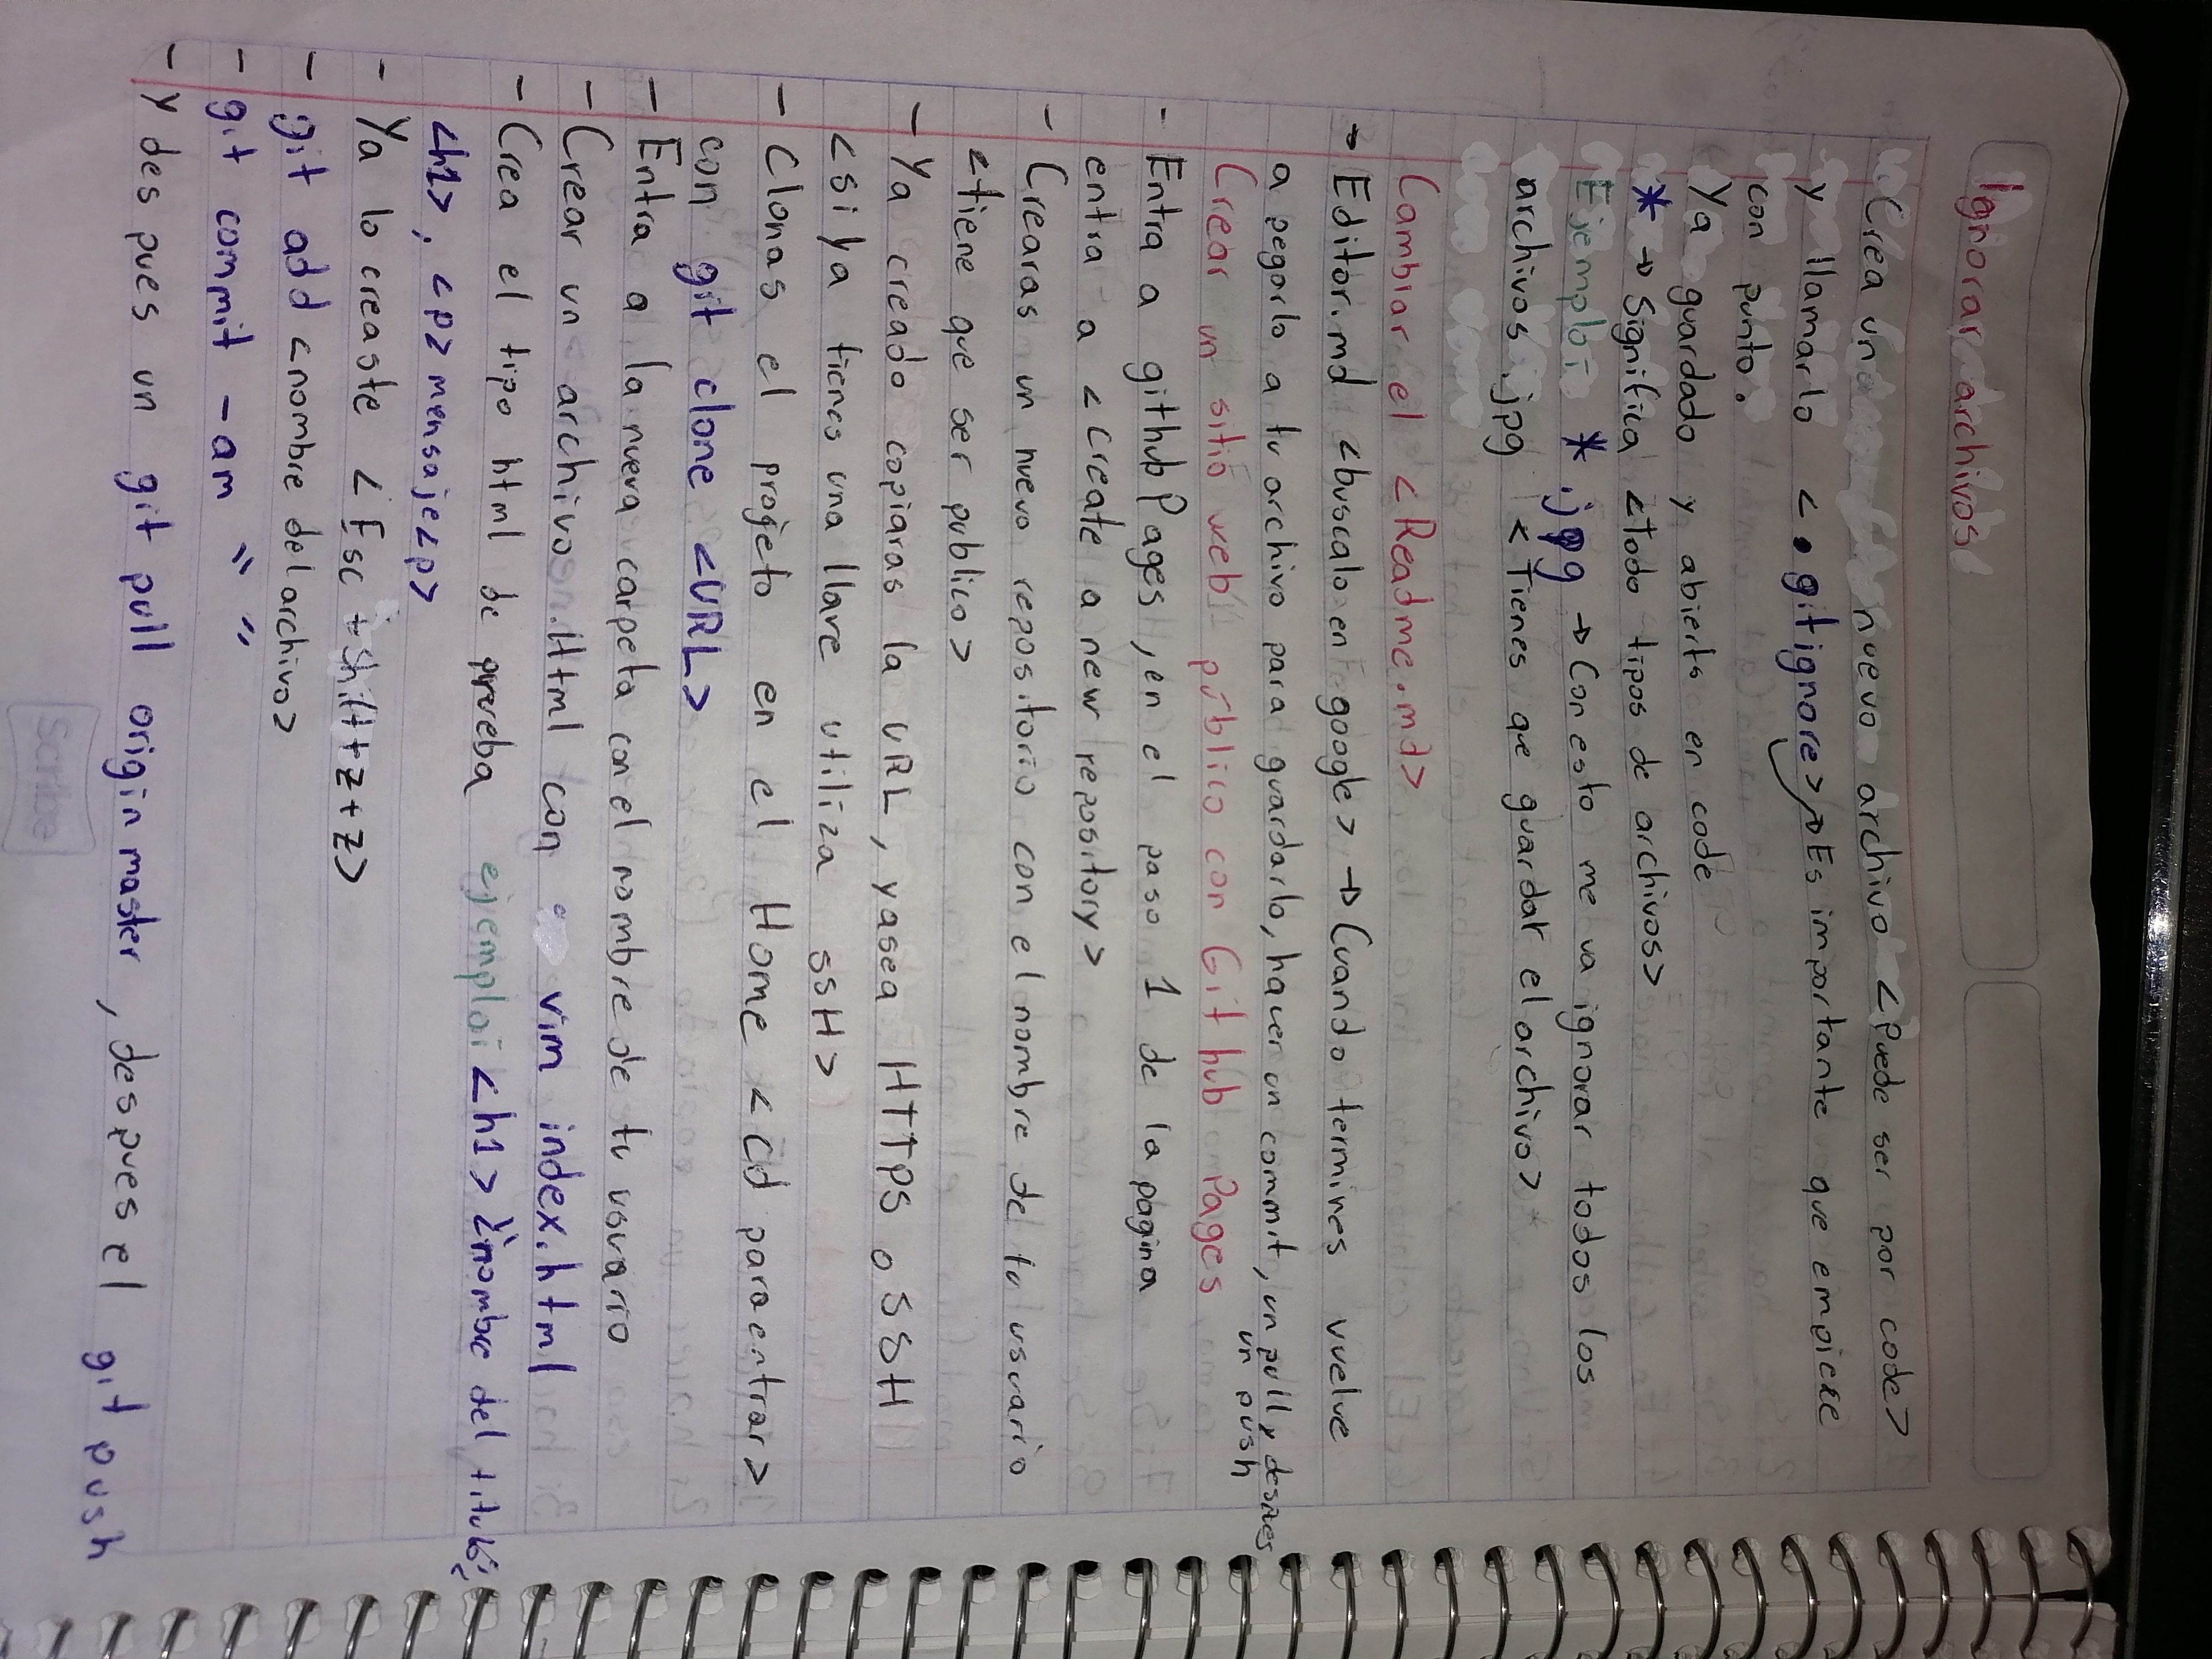 Ignorar archivos
Crea un nuevo archivo <Puede ser por code>
y llamarlo <.gitignore> → Es importante que empiece
con punto.
Ya guardado y abierto en code
* → Significa <Todo tipos de archivos>
Ejemplo: *.jpg → Con esto me va ignorar todos los
archivos .jpg <Tienes que guardar el archivo>
Cambiar el <Readme.md>
- Editor.md <buscalo en google> → Cuando termines vuelve
a pegarlo a tu archivo para guardarlo, hacer un commit, un pull y despues
un push
Crear un sitio web público con Git hub Pages
- Entra a github Pages, en el paso 1 de la pagina
entra a <Create a new repository>
- Crearas un nuevo repositorio con el nombre de tu usuario
<tiene que ser publico>
- Ya creado copiaras la URL, ya sea HTTPS o SSH
<si ya tienes una llave utiliza SSH>
- Clonas el projeto en el Home <cd para entrar>
con git clone <URL>
- Entra a la nueva carpeta con el nombre de tu usuario
- Crear un archivo .Html con vim index.html
- Crea el tipo html de prueba ejemplo: <h1> "nombre del titulo"
<h1>, <p> mensaje<p>
- Ya lo creaste <Esc + Shift + z + z>
- git add <nombre del archivo>
- git commit -am " "
- y des pues un git pull origin master, despues el git push
Scribe